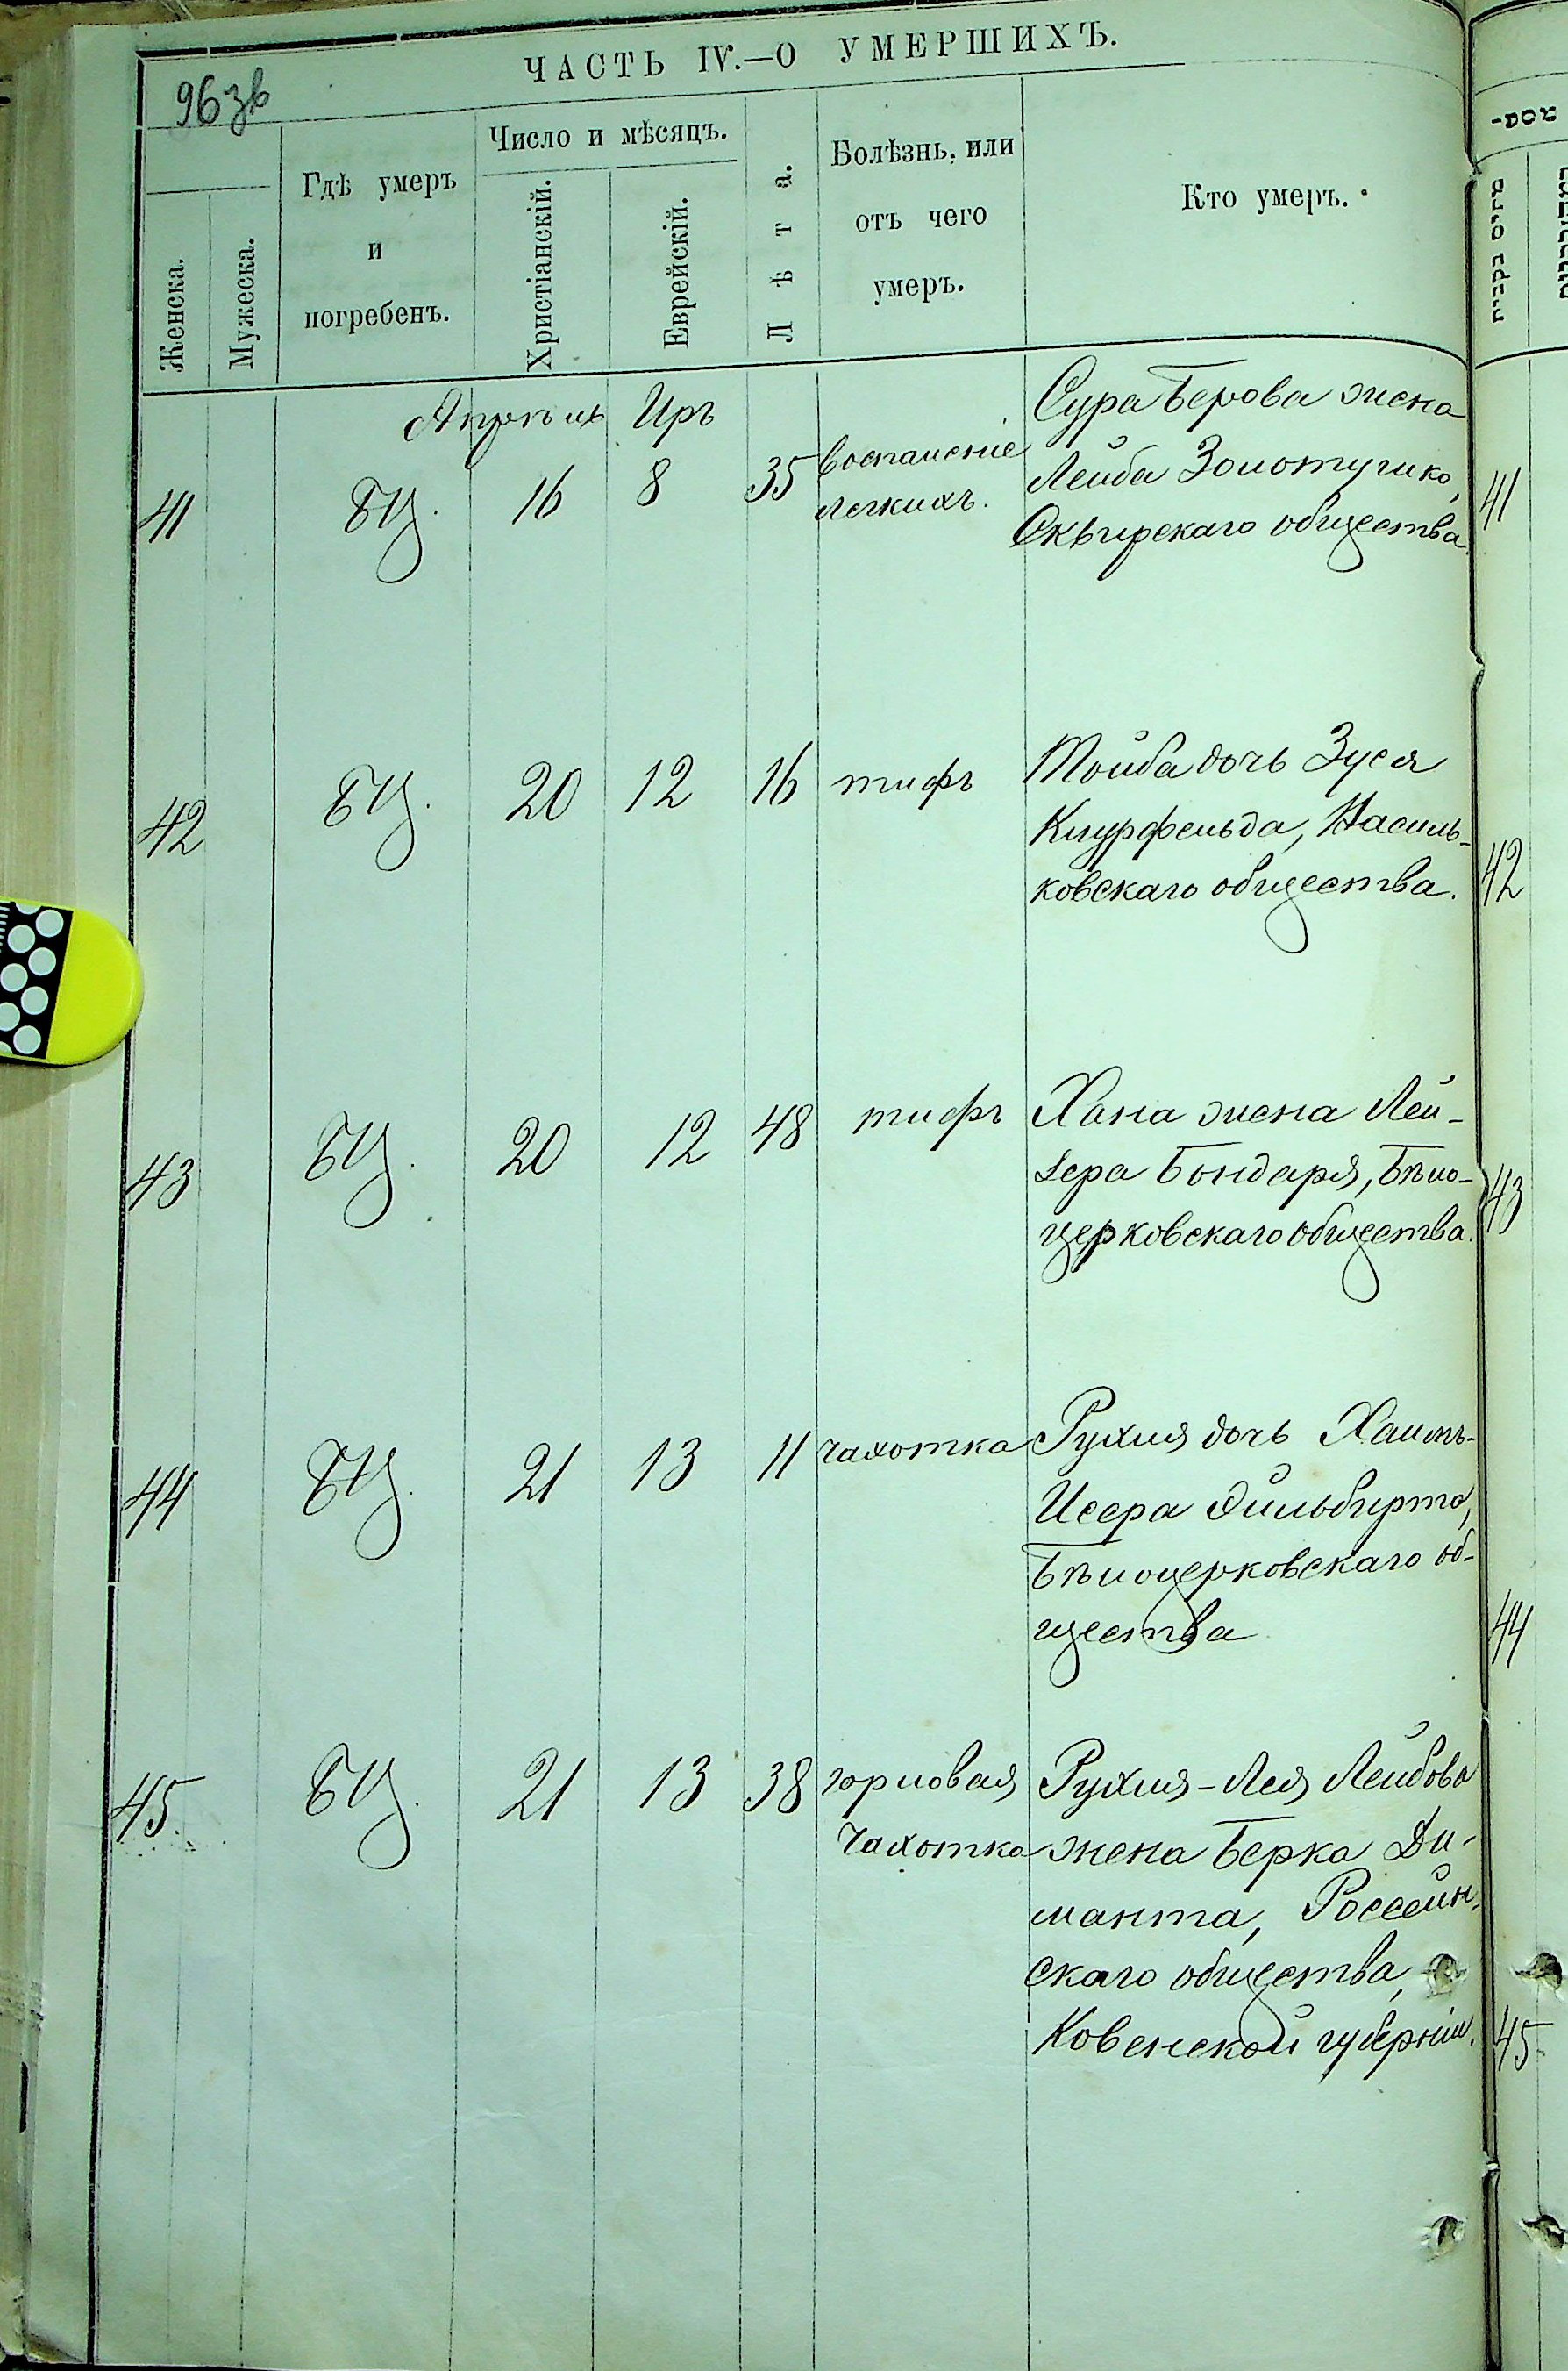 ЧАСТЬ IV.—О УМЕРШИХЪ.
96 зв
Женска.
Мужеска.
Гдѣ умеръ
и
погребенъ.
Число и мѣсяцъ.
Христіанскій.
Еврейскій.
Лѣта.
Болѣзнь, или
отъ чего
умеръ.
Кто умеръ.
Апрѣль Иръ
41 БЦ. 16 8 35 воспаленіе
легкихъ.
Сура Берова жена
Лейба Золотушко,
Сквирскаго общества.
41
42 БЦ. 20 12 16 тифъ
Тойба дочь Зуся
Кнурфельда, Василь-
ковскаго общества.
42
43 БЦ. 20 12 48 тифъ
Хана жена Лей-
зера Бондаря, Бѣло-
церковскаго общества.
43
44 БЦ. 21 13 11 чахотка
Рухля дочь Хаимъ-
Исера
Бѣлоцерковскаго об-
щества
44
45 БЦ. 21 13 38 горловая
чахотка
Рухля-Лея Лейбова
жена Берка Ди-
манта, Россейн-
скаго общества,
Ковенской губерніи.
45